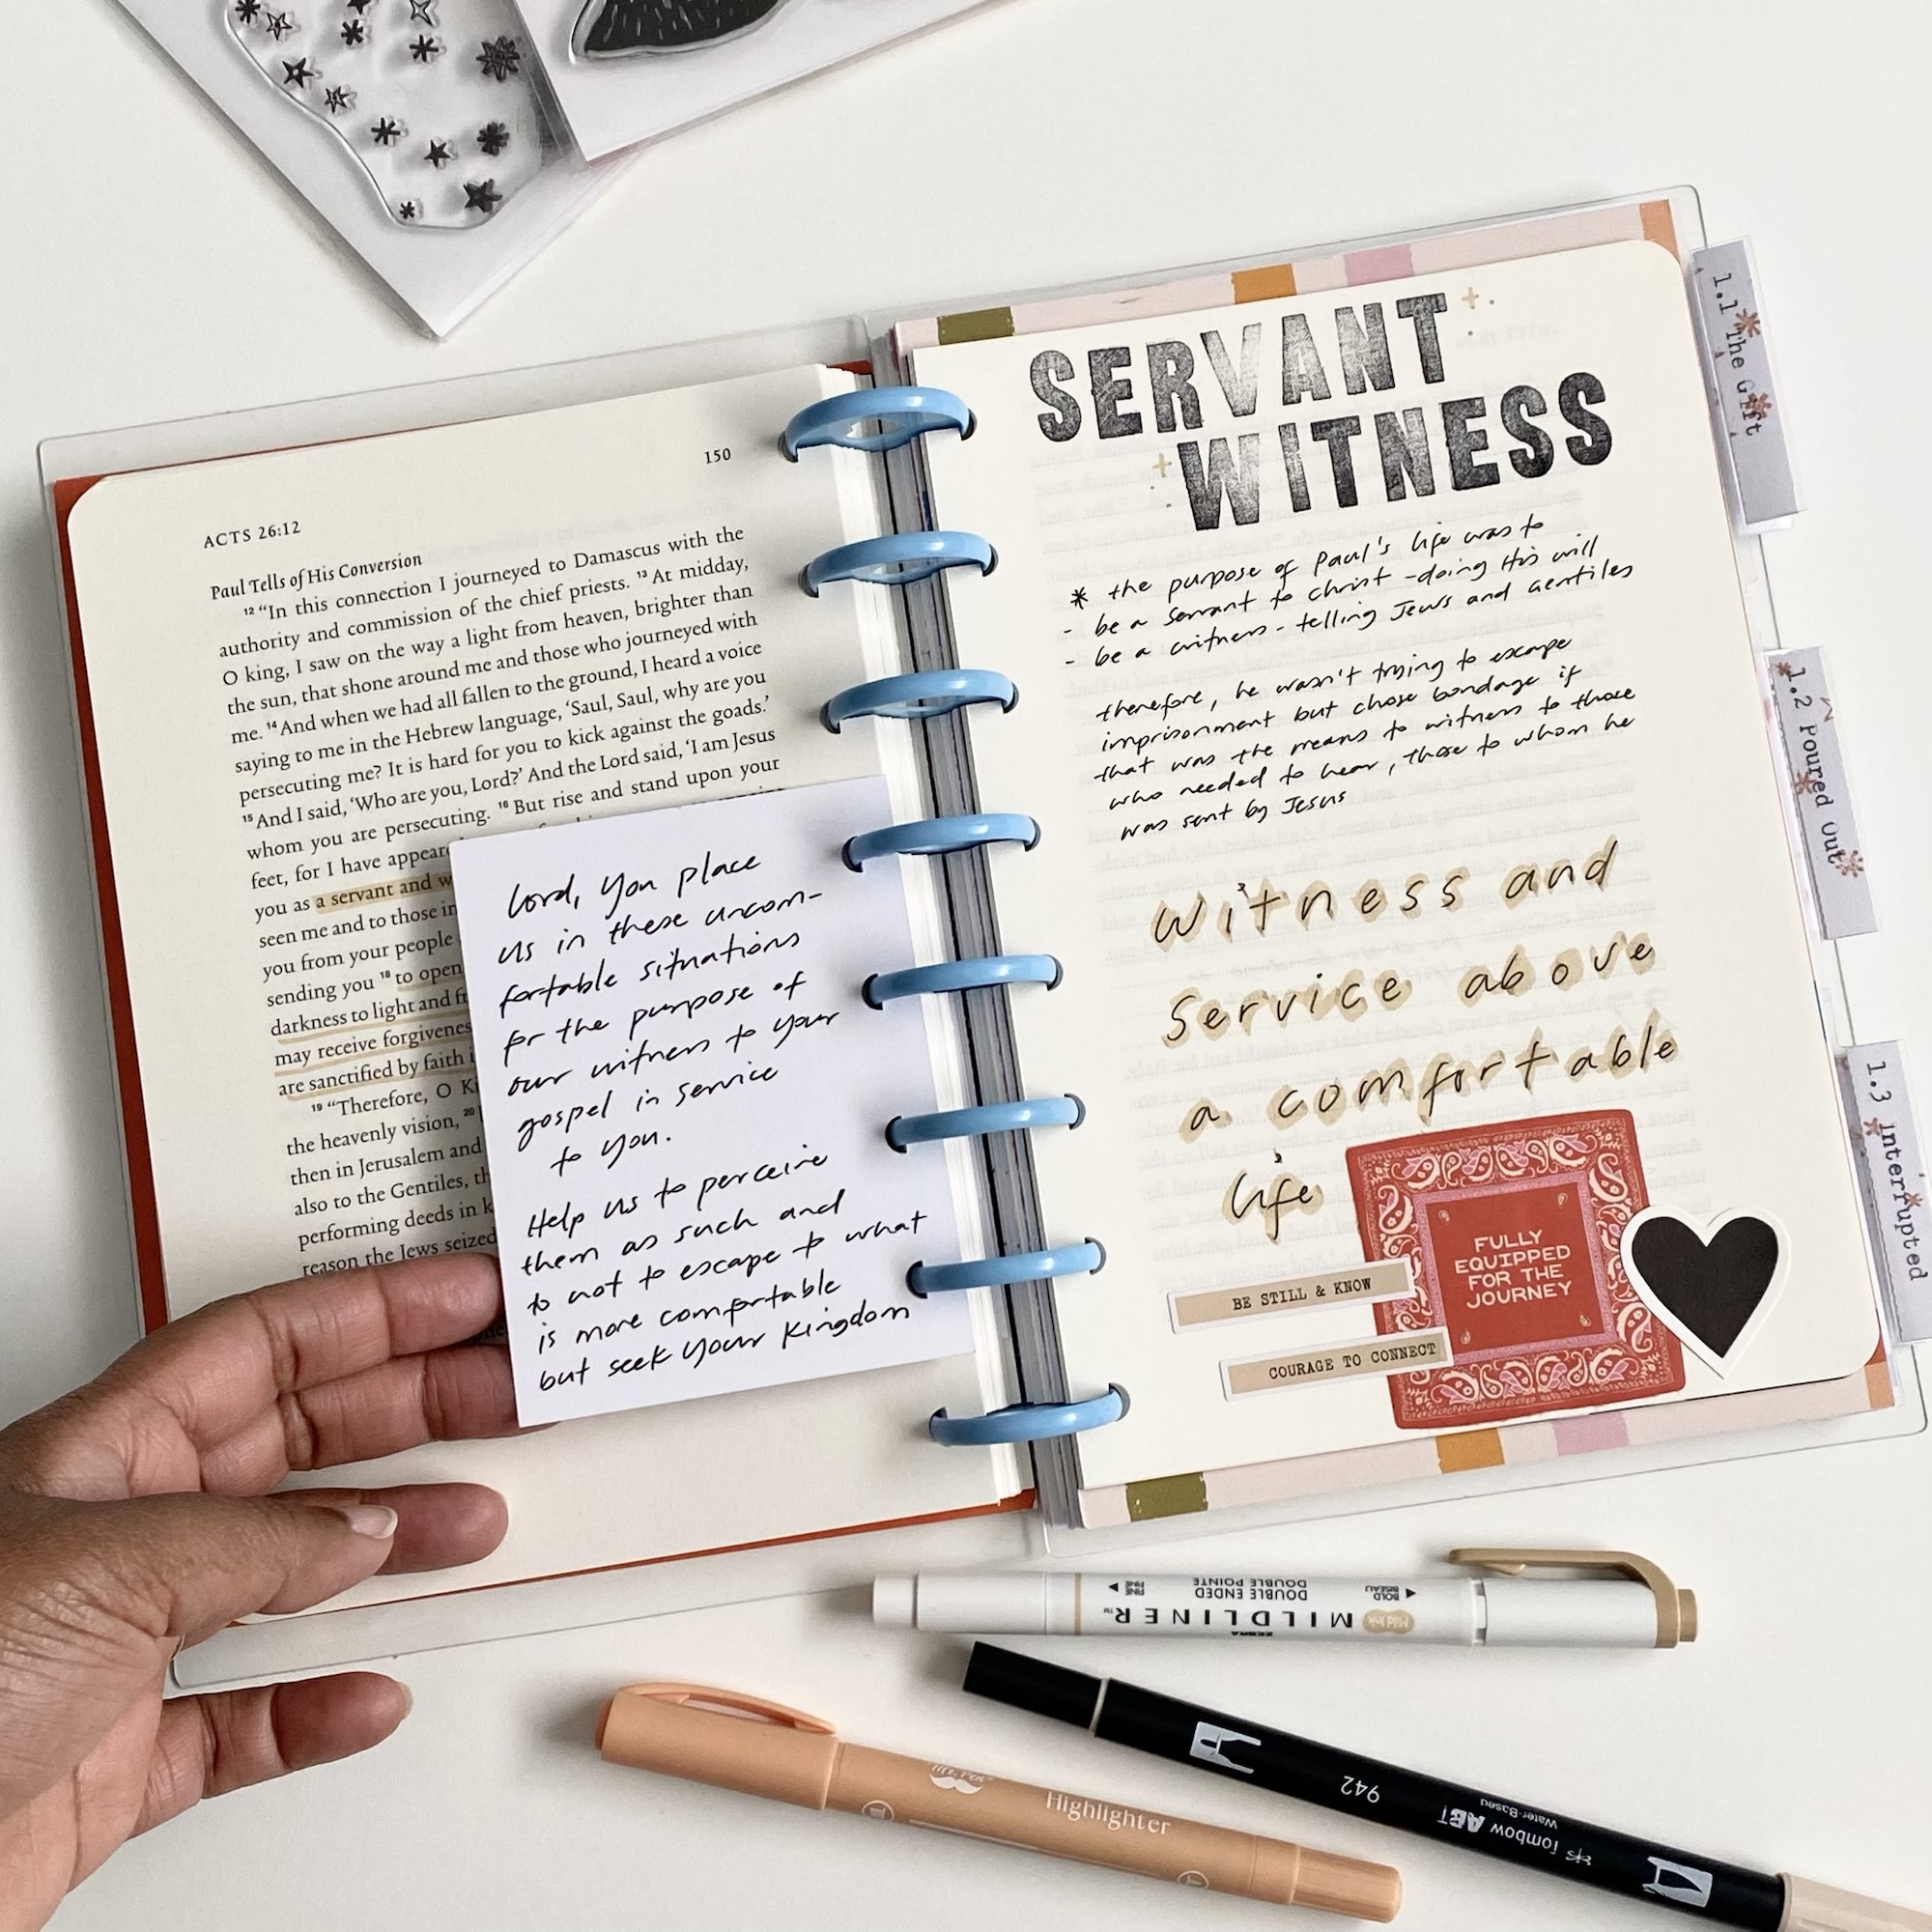 150
ACTS 26:12
Paul Tells of His Conversion
12 “In this connection I journeyed to Damascus with the
authority and commission of the chief priests. 13 At midday,
O king, I saw on the way a light from heaven, brighter than
the sun, that shone around me and those who journeyed with
me. 14 And when we had all fallen to the ground, I heard a voice
saying to me in the Hebrew language, ‘Saul, Saul, why are you
persecuting me? It is hard for you to kick against the goads.’
15 And I said, ‘Who are you, Lord?’ And the Lord said, ‘I am Jesus
whom you are persecuting. 16 But rise and stand upon your
feet, for I have appeare
you as a servant and w
seen me and to those in
you from your people
sending you 18 to open
darkness to light and f
may receive forgivenes
are sanctified by faith i
19 “Therefore, O Ki
the heavenly vision, 20
then in Jerusalem and
also to the Gentiles, th
performing deeds in k
reason the Jews seized
Lord, you place
us in these uncom-
fortable situations
for the purpose of
our witness to your
gospel in service
to you.
Help us to perceive
them as such and
to not to escape to what
is more comfortable
but seek your Kingdom
SERVANT
WITNESS
* the purpose of Paul's life was to
- be a servant to Christ - doing His will
- be a witness - telling Jews and Gentiles
therefore, he wasn't trying to escape
imprisonment but chose bondage if
that was the means to witness to those
who needed to hear, those to whom he
was sent by Jesus
Witness and
Service above
a comfortable
life
FULLY
EQUIPPED
FOR THE
JOURNEY
BE STILL & KNOW
COURAGE TO CONNECT
1.1 The Gift
1.2 Poured Out
1.3 Interrupted
ZEBRA
MILDLINER™
Mild Ink
DOUBLE ENDED
DOUBLE POINTE
FINE
FINE
BOLD
BISEAU
942
Tombow ABT
Water-Based
Mr. Pen
Highlighter